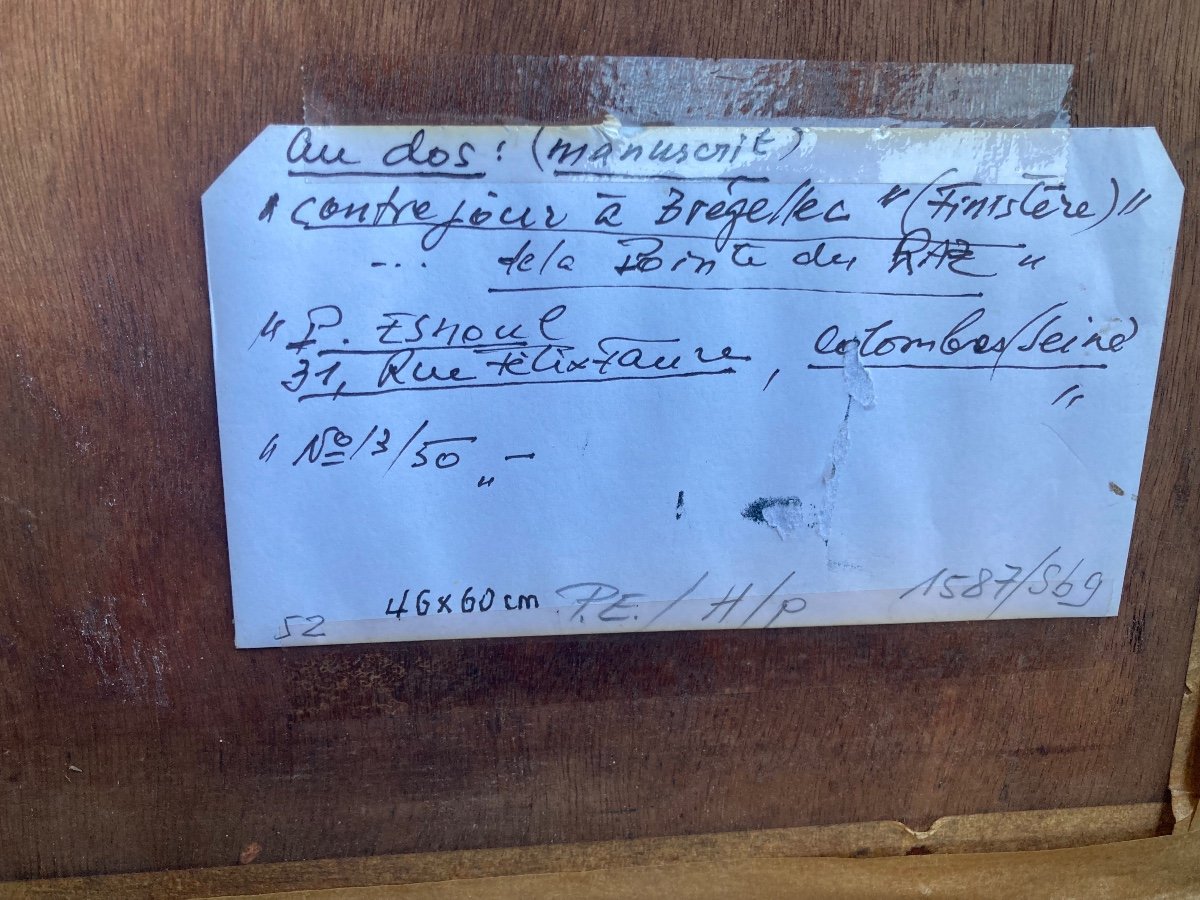 au dos : (manuscrit)
" contrejour à Brégellec " (Finistère) "
... de la Pointe du RAZ "
" P. Esnoul
31, Rue Félix Faure , Colombes/Seine
"
" Nº 13/50 " -
52 46x60 cm P.E. / H/p 1587/Sbg